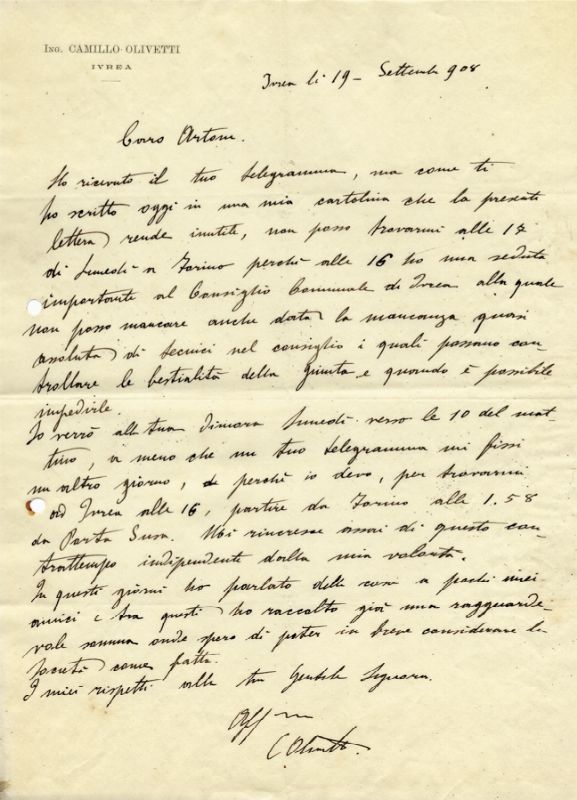 ING. CAMILLO OLIVETTI
IVREA
Ivrea li 19 - Settembre 908
Caro Artom.
Ho ricevuto il tuo telegramma, ma come ti
ho scritto oggi in una mia cartolina che la presente
lettera rende inutile, non posso trovarmi alle 14
di Lunedì a Torino perchè alle 16 ho una seduta
importante al Consiglio Comunale di Ivrea alla quale
non posso mancare anche data la mancanza quasi
assoluta di tecnici nel consiglio i quali possano con-
trollare le bestialità della Giunta e quando è possibile
impedirle.
Io verrò alla tua dimora Lunedì verso le 10 del mat-
tino, a meno che un tuo telegramma mi fissi
un altro giorno, perchè io devo, per trovarmi
ad Ivrea alle 16, partire da Torino alle 1.58
da Porta Susa. Mi rincresce assai di questo con-
trattempo indipendente dalla mia volontà.
In questi giorni ho parlato della cosa a pochi miei
amici e tra questi ho raccolto già una ragguarde-
vole somma onde spero di poter in breve considerare la
Società come fatta.
I miei rispetti alla tua Gentile Signora.
Aff mo
C Olivetti